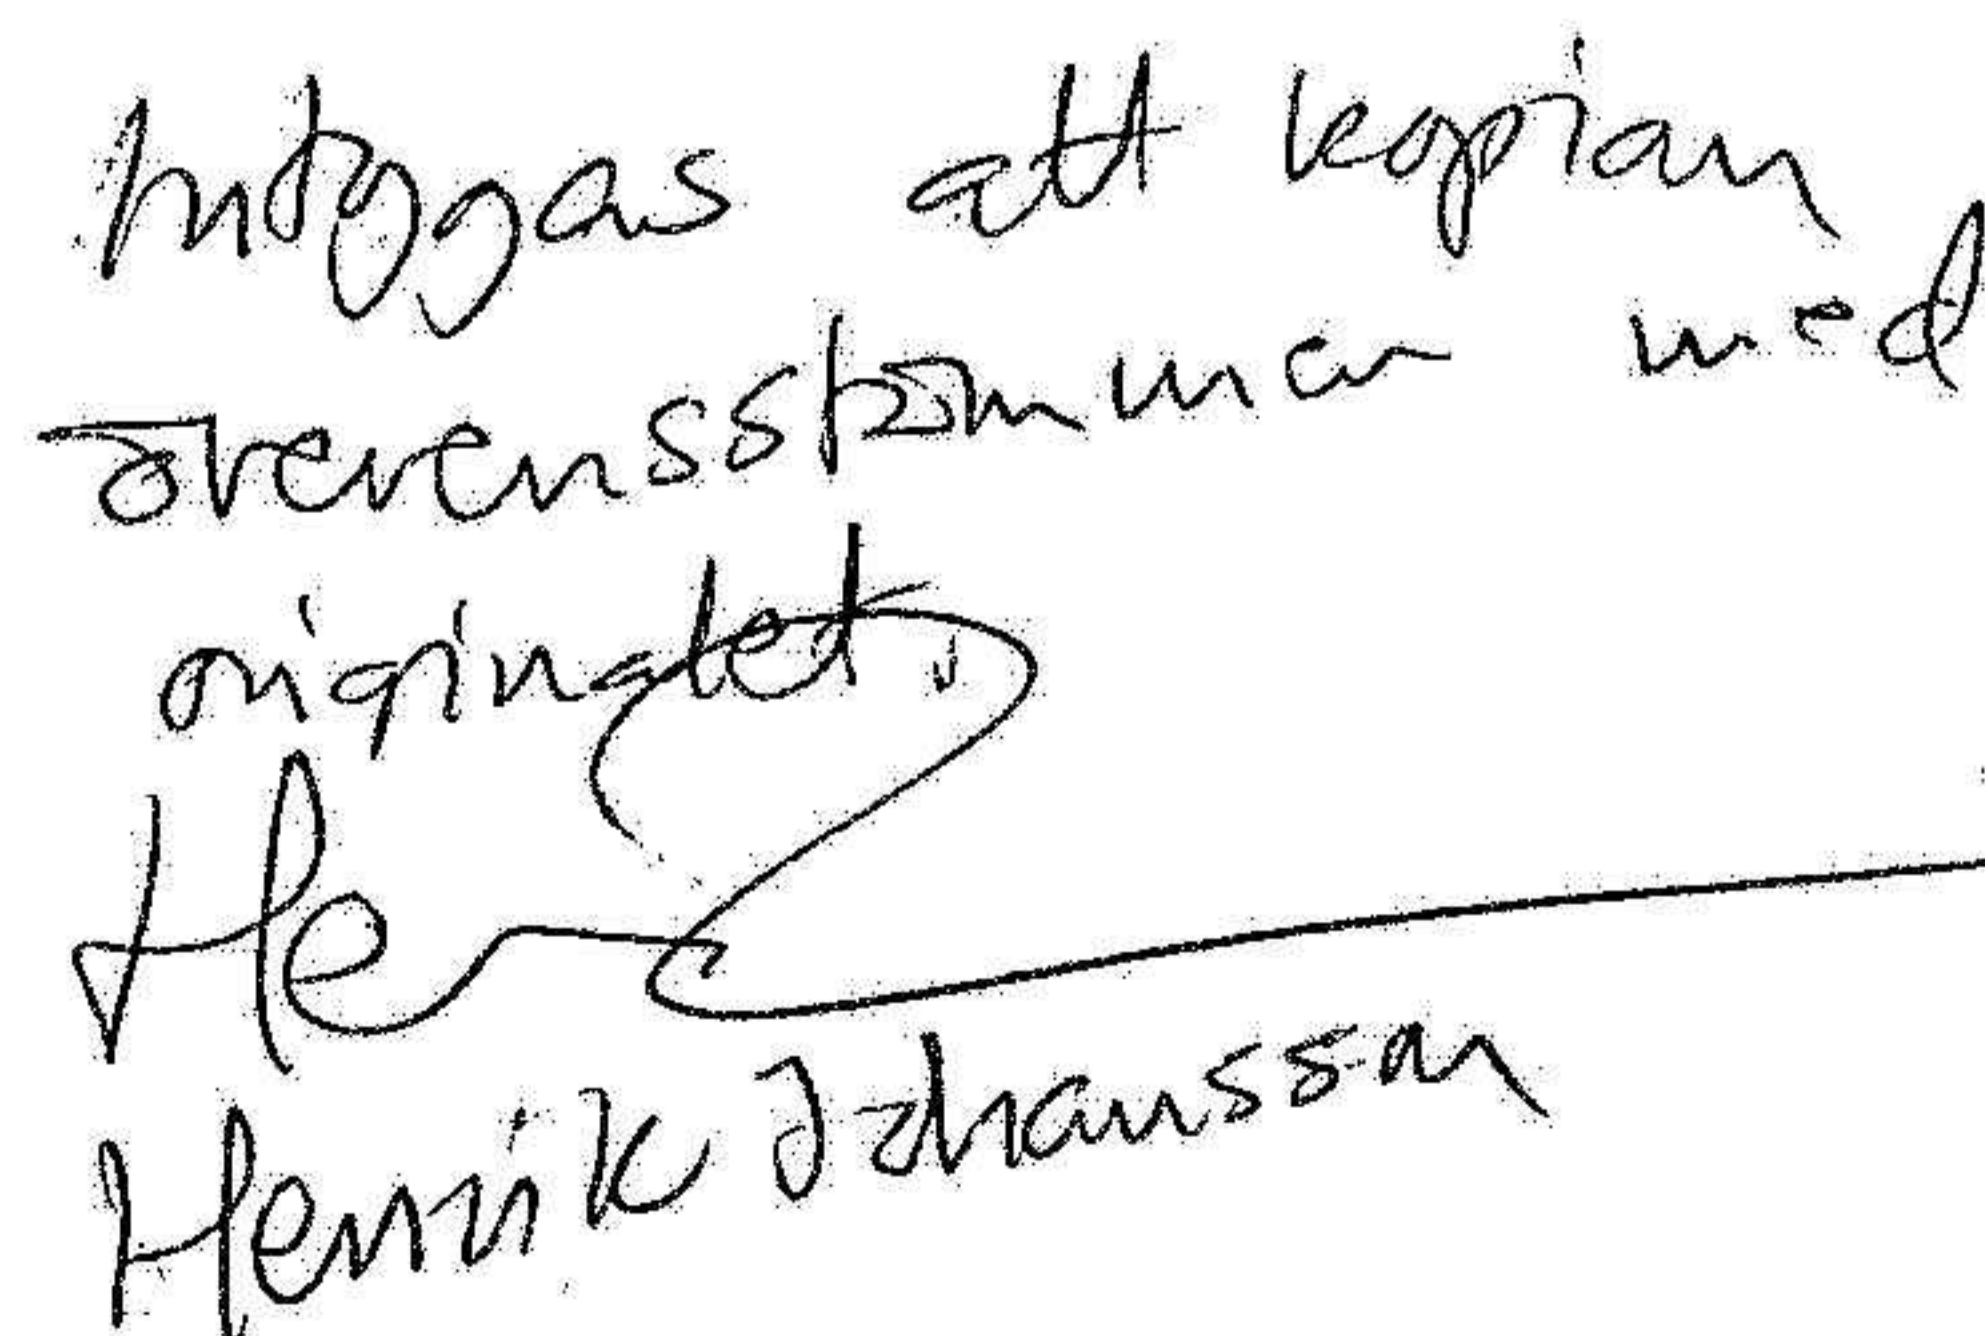 Intygas att kopian
överensstämmer med
originalet,
Henrik Johansson